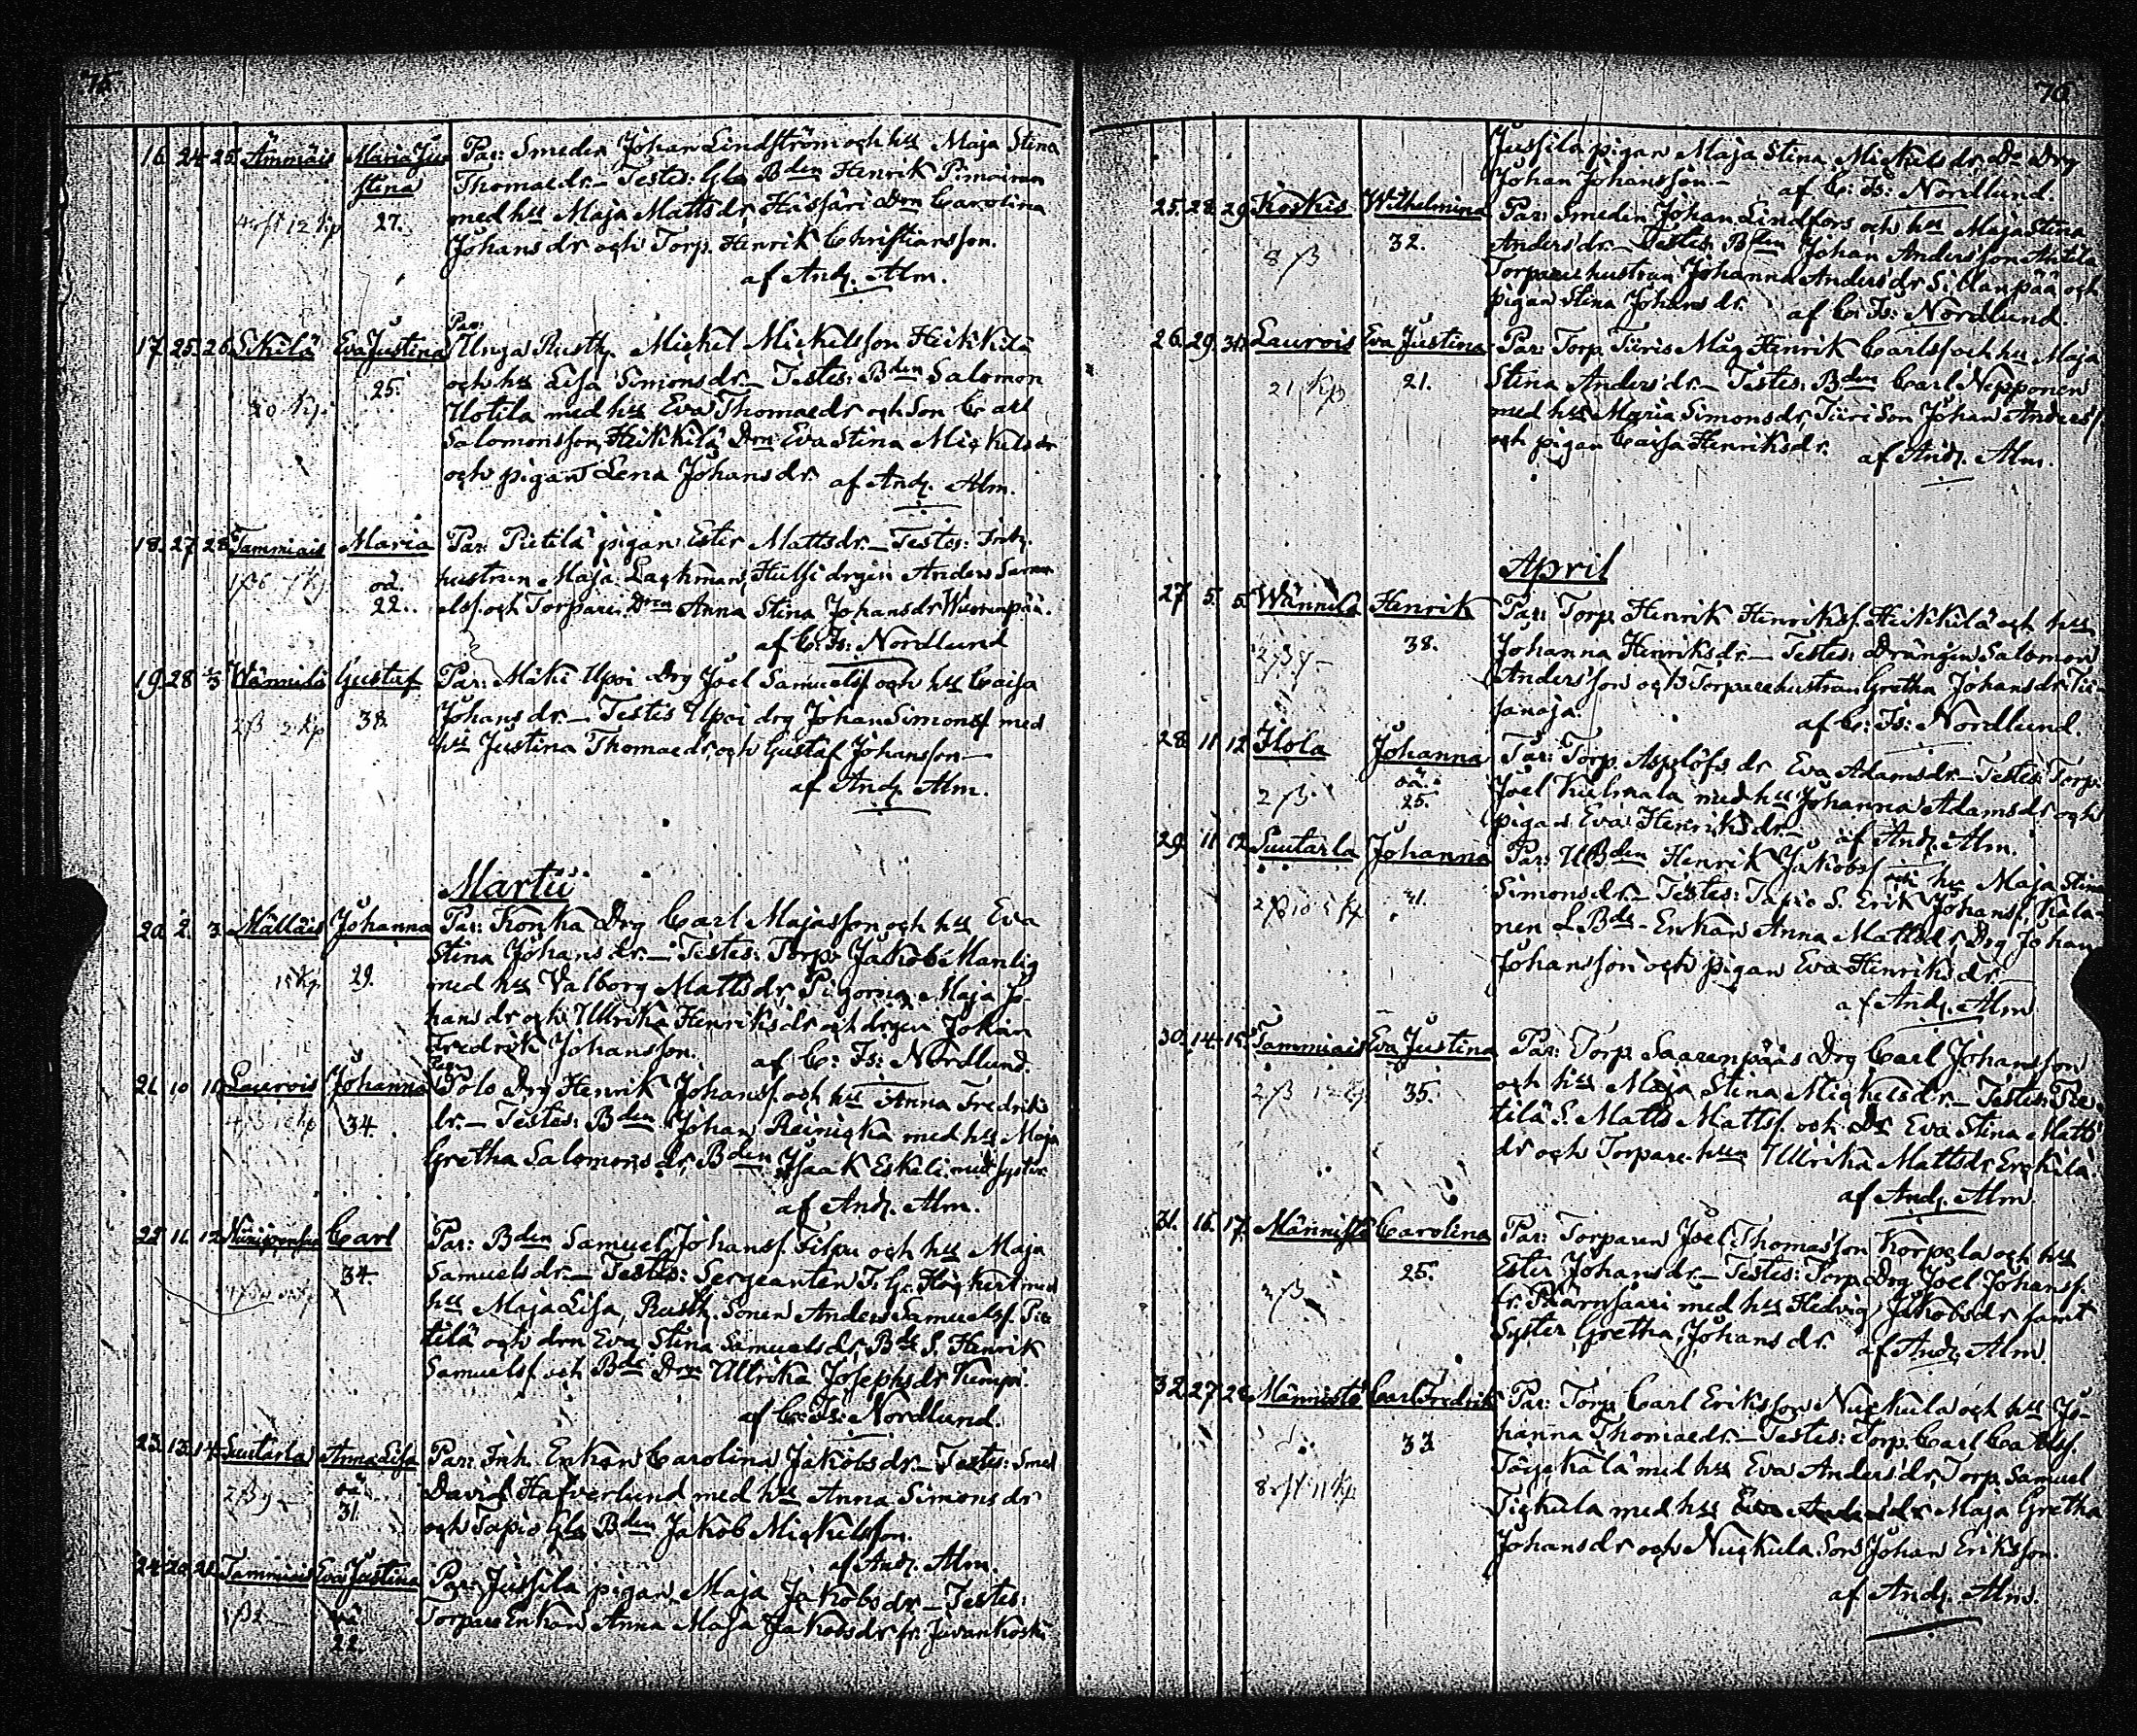 75
16. 24. 25. Ämmäis Maria Ju- Par: Smeden Johan Lindström och hu Maja Stina
stina Thomaedr. Testes: Gla Bden Henrik
27. med hu Maja Mattsdr, Hassari Drn Carolina
Johansdr och Torp. Henrik Christiansson.
af Andr. Alm.
Par:
17. 25. 26. Sikilä Eva Justina Unga Rusth. Mickel Mickelsson Heikkilä
25. och hu Lisa Simonsdr. Testes: Bden Salomon
20 kp. Uotila med hu Eva Thomaedr och Son Carl
Salomonsson, Heikkilä Drn Eva Stina Mickelsdr
och pigan Lena Johansdr. af Andr. Alm.
18. 27. 28. Tammiais Maria Par: Pietilä pigan Ester Mattsdr. Testes: Inh.
oä. hustrun Maja Lackman, Hulsi drgen Anders Samu-
22. elss. och Torpare Drn Anna Stina Johansdr Wuorenpää.
af C: Fs: Nordlund
19. 28 1/3 Wännilä Gustaf Par: Mäki Upoi Drg Joel Samuelss och hu Caisa
2ß 2 kp 38. Johansdr. Testes Upoi drg Johan Simonss med
hu Justina Thomaedr, och Gustaf Johansson
af Andr. Alm.
Martii
20. 2. 3. Mälläis Johanna Par: Konka Drg Carl Majasson och hu Eva
15 kp. 29. Stina Johansdr. Testes: Torp. Jakob Manlig
med hu Valborg Mattsdr, Pigorna Maja Jo-
hansdr och Ullrika Henriksdr och drgen Johan
Fredrik Johansson. af C: Fs: Nordlund.
Par:
21. 10. 11. Laurois Johanna Polo Drg Henrik Johanss. och hu Anna Fredriks
34. dr. Testes: Bden Johan Reinicka med hu Maja
Gretha Salomonsdr, Bden Isaak Eskeli med syster
af Andr. Alm.
22. 11. 12. Carl Par: Bden Samuel Johanss. Filpu och hu Maja
34. Samuelsdr. Testes: Sergeanten med
hu Maja Lisa, Rusth. Sonen Anders Samuelss. Pie
tilä och drn Eva Stina Samuelsdr, Bde S. Henrik
Samuelss. och Bde Drn Ullrika Josephsdr Kumpi.
af C: Fs: Nordlund.
23. 13. 14. Suutarla Anna Lisa Par: Inh. Enkan Carolina Jakobsdr. Testes: Smed
oä. David Hafverlund med hu Anna Simonsdr
31. och Tapio Gla Bden Jakob Mickelsson.
af Andr. Alm.
24. 20. 21. Tammiais Eva Justina Par: Jussila pigan Maja Jakobsdr. Testes:
oä Torpare Enkan Anna Maja Jakobsdr fr. Juvankoski
22.
76
Jussila pigan Maja Stina Mickelsdr, Do Drg
Johan Johansson. af C: Fs: Nordlund.
25. 28. 29. Koskis Wilhelmina Par: Smeden Johan Lindfors och hu Maja Stina
8 ß 32. Andersdr. Testes: Bden Johan Andersson Anttila
Torpare hustrun Johanna Andersdr Sillanpää och
pigan Stina Johansdr. af C: Fs: Nordlund.
26. 29. 31. Laurois Eva Justina Par: Torp. Türis Måg Henrik Carlss och hu Maja
21 kp 21. Stina Andersdr. Testes: Bden Carl Nepponen
med hu Maria Simonsdr, Türi Son Johan Anderss.
och pigan Caisa Henriksdr. af Andr. Alm.
April
27. 5. 5. Wännilä Henrik Par: Torp. Henrik Henrikss. Heikkilä och hu
38. Johanna Henriksdr. Testes: Drängen Salomon
Andersson och Torparehustrun Gretha Johansdr Tii-
sanoja. af C: Fs: Nordlund.
28. 11. 12. Ilola Johanna Par: Torp. Asplöfs dr Eva Adamsdr. Testes: Torp.
oä. Joel Kulmala med hu Johanna Adamsdr och
2 ß 25. pigan Eva Henriksdr. af Andr. Alm.
29. 11. 12. Suutarla Johanna Par: UBden Henrik Jakobss och hu Maja Stina
41. Simonsdr. Testes: Tapio S. Erik Johanss, Kala-
nen L. Bds Enkan Anna Mattsdr Drg Johan
Johansson och pigan Eva Henriksdr.
af Andr. Alm
30. 14. 15. Tammiais Eva Justina Par: Torp. Saarenpääs Drg Carl Johansson
35. och hu Maja Stina Mickelsdr. Testes: Pie
tilä S. Matts Mattss. och Dr Eva Stina Matts
dr och Torpare hun Ullrika Mattsdr Erckilä.
af Andr. Alm
31. 16. 17. Männistö Carolina Par: Torparen Joel Thomasson Korpela och hu
25. Ester Johansdr. Testes: Torp. Drg Joel Johanss.
fr. Päärnsaari med hu Hedvig Jakobsdr samt
Syster Gretha Johansdr. af Andr. Alm.
32. 27. 28. Männistö Carl Fredrik Par: Torp. Carl Eriksson Nuckula och hu Jo-
33 hanna Thomaedr. Testes: Torp. Carl Carlss.
med hu Eva Andersdr, Torp. Samuel
8 11 kp Tickula med hu Eva Andersdr Maja Gretha
Johansdr och Nuckula Son Johan Eriksson.
af Andr. Alm.